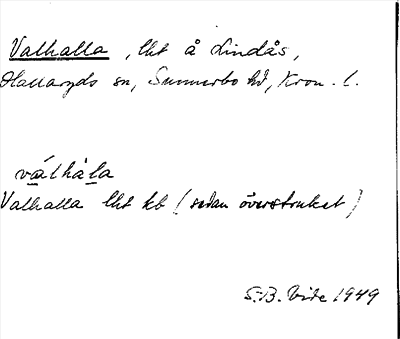 Valhalla, lht å Lindås,
Hallaryds sn, Sunnerbo hd, Kron. l.
válhàla
Valhalla lht kb (sedan överstruket)
S.B. Vide 1949